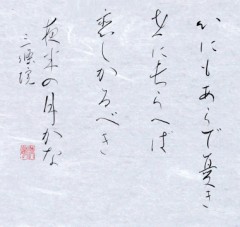 心にもあらで憂き
世に長らへば
恋しかるべき
夜半の月かな
三条院